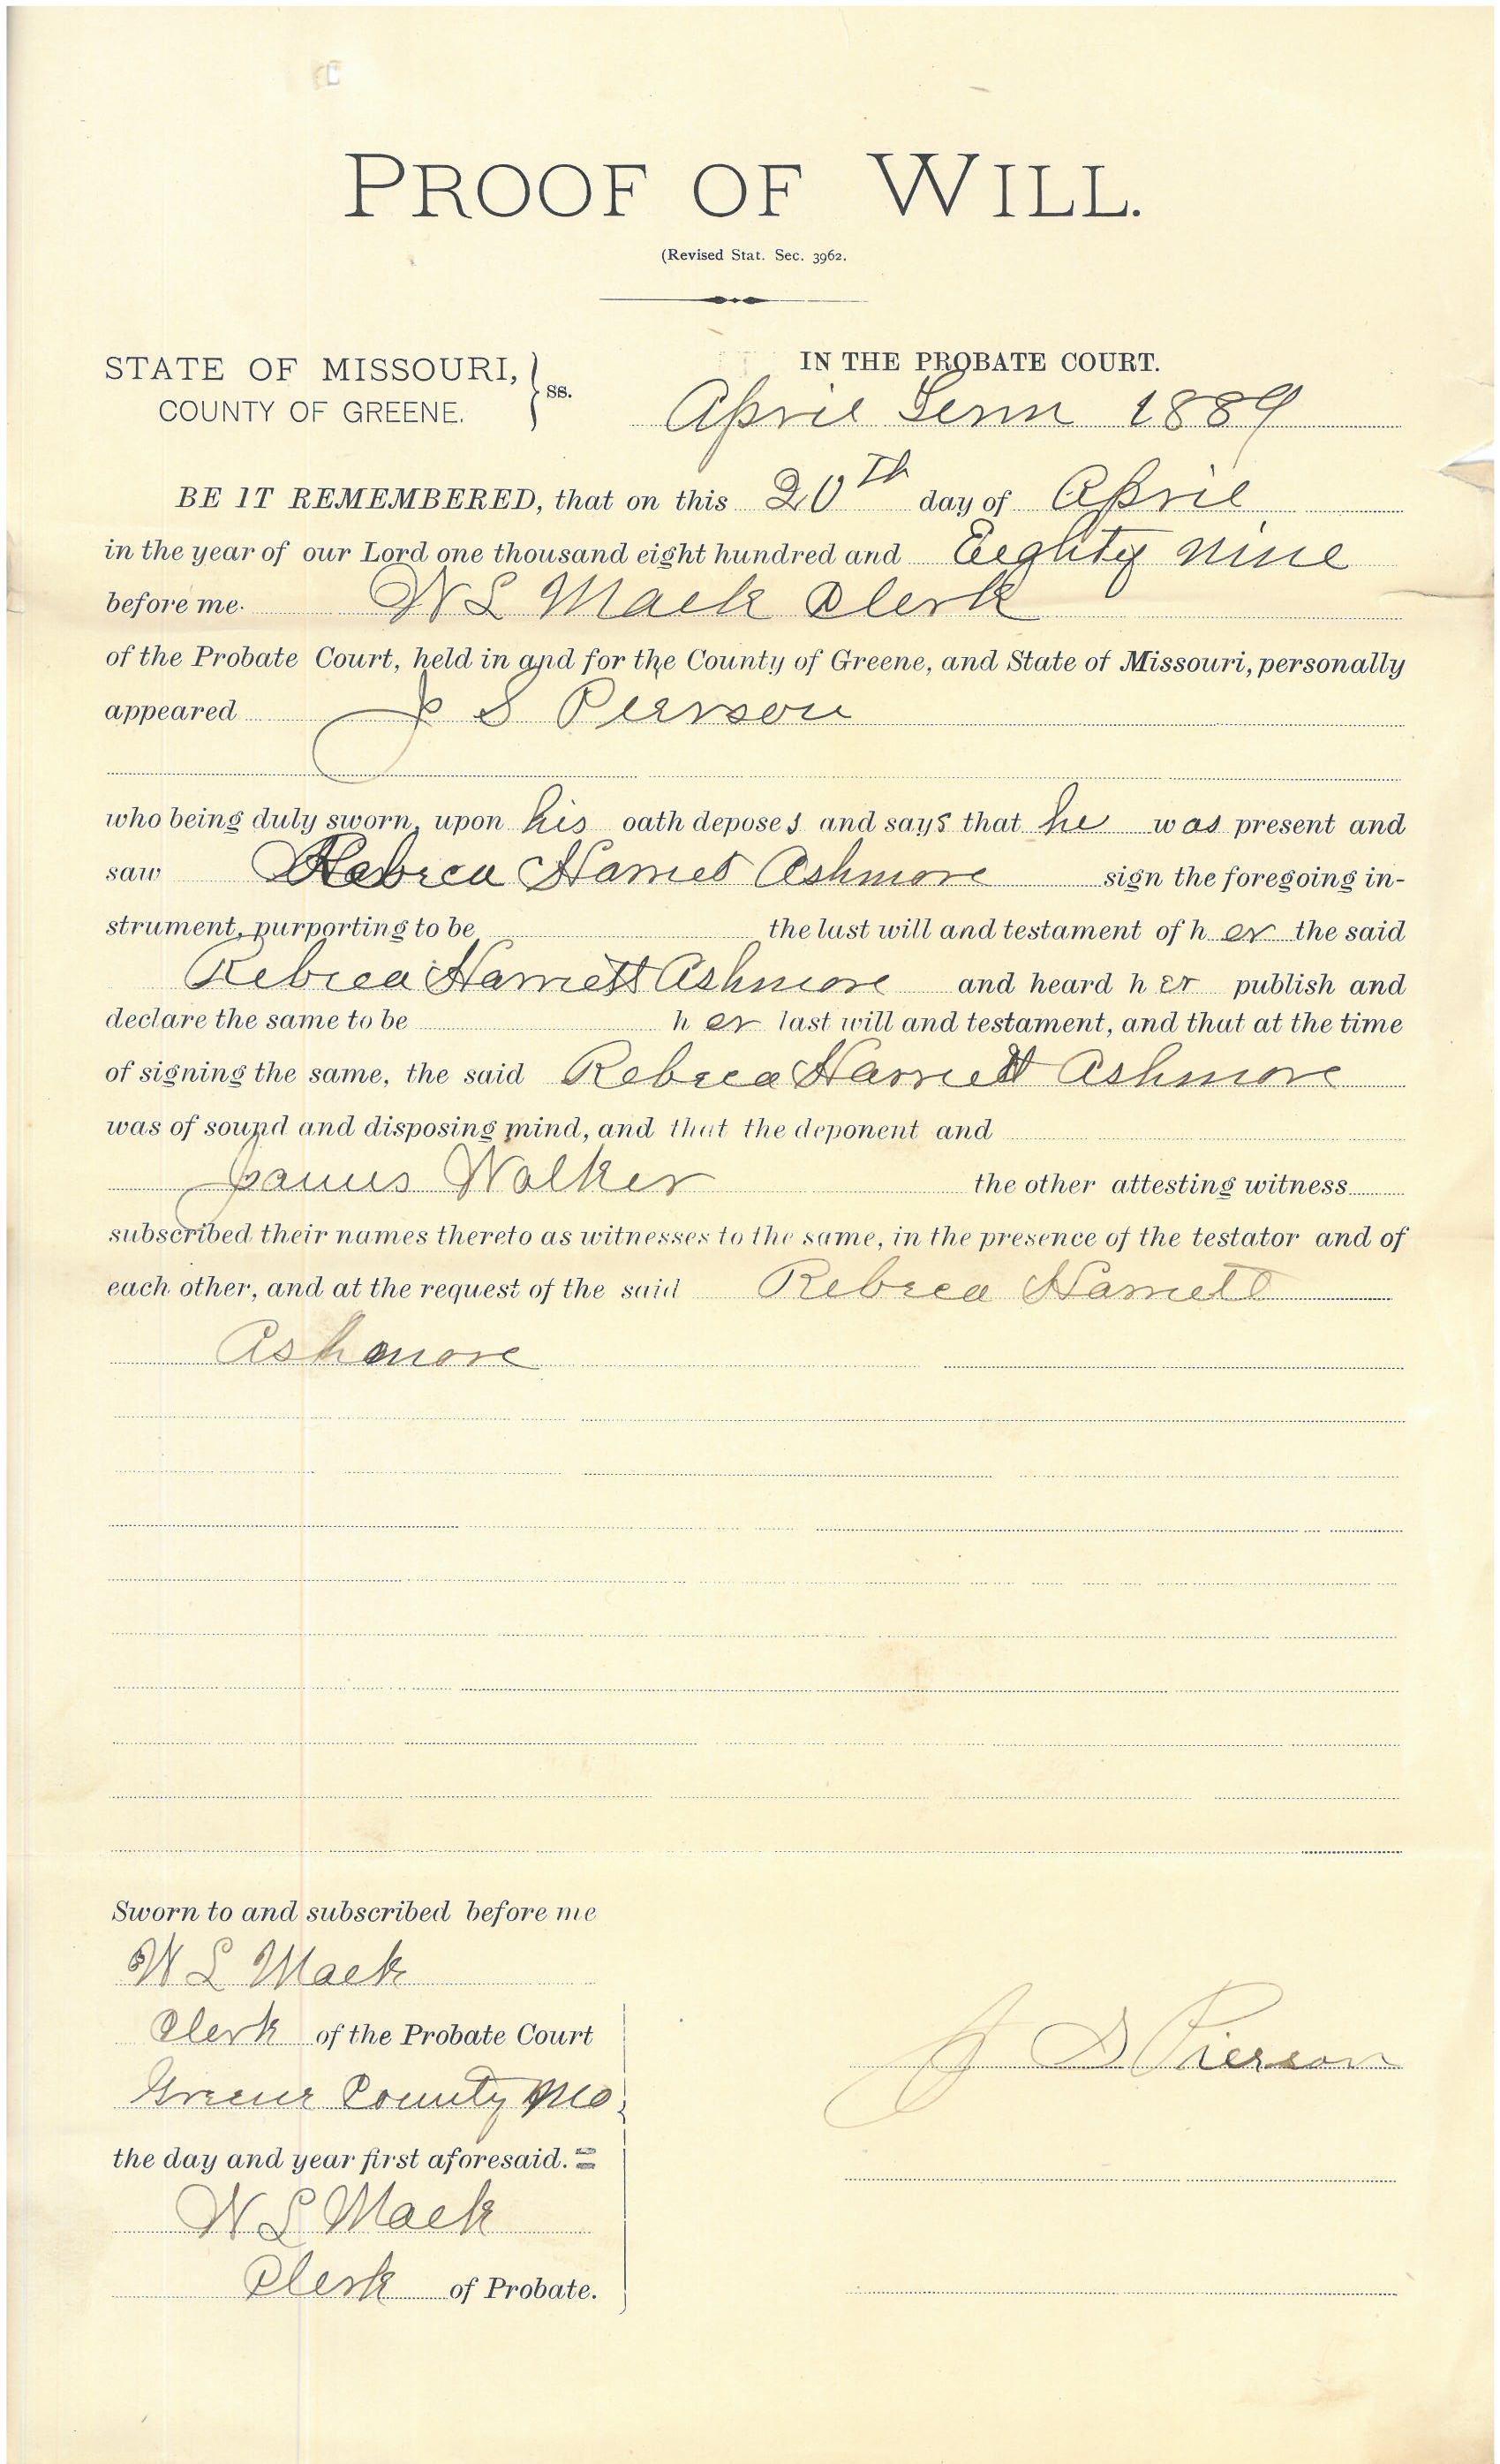 PROOF OF WILL.
(Revised Stat. Sec. 3962.
STATE OF MISSOURI, } ss.
COUNTY OF GREENE.
IN THE PROBATE COURT.
April Term 1889
BE IT REMEMBERED, that on this 20th day of April
in the year of our Lord one thousand eight hundred and Eeghty nine
before me. W L Mack Clerk
of the Probate Court, held in and for the County of Greene, and State of Missouri, personally
appeared J S Pierson
who being duly sworn, upon his oath deposes and says that he was present and
saw Rebrca Harriet Ashmore sign the foregoing in-
strument, purporting to be the last will and testament of her the said
Rebrca Harriett Ashmore and heard her publish and
declare the same to be her last will and testament, and that at the time
of signing the same, the said Rebrca Harriett Ashmore
was of sound and disposing mind, and that the deponent and
James Walker the other attesting witness
subscribed their names thereto as witnesses to the same, in the presence of the testator and of
each other, and at the request of the said Rebrca Harriett
Ashmore
Sworn to and subscribed before me
W L Mack
Clerk of the Probate Court
Greene County Mo
the day and year first aforesaid.
W L Mack
Clerk of Probate.
J S Pierson